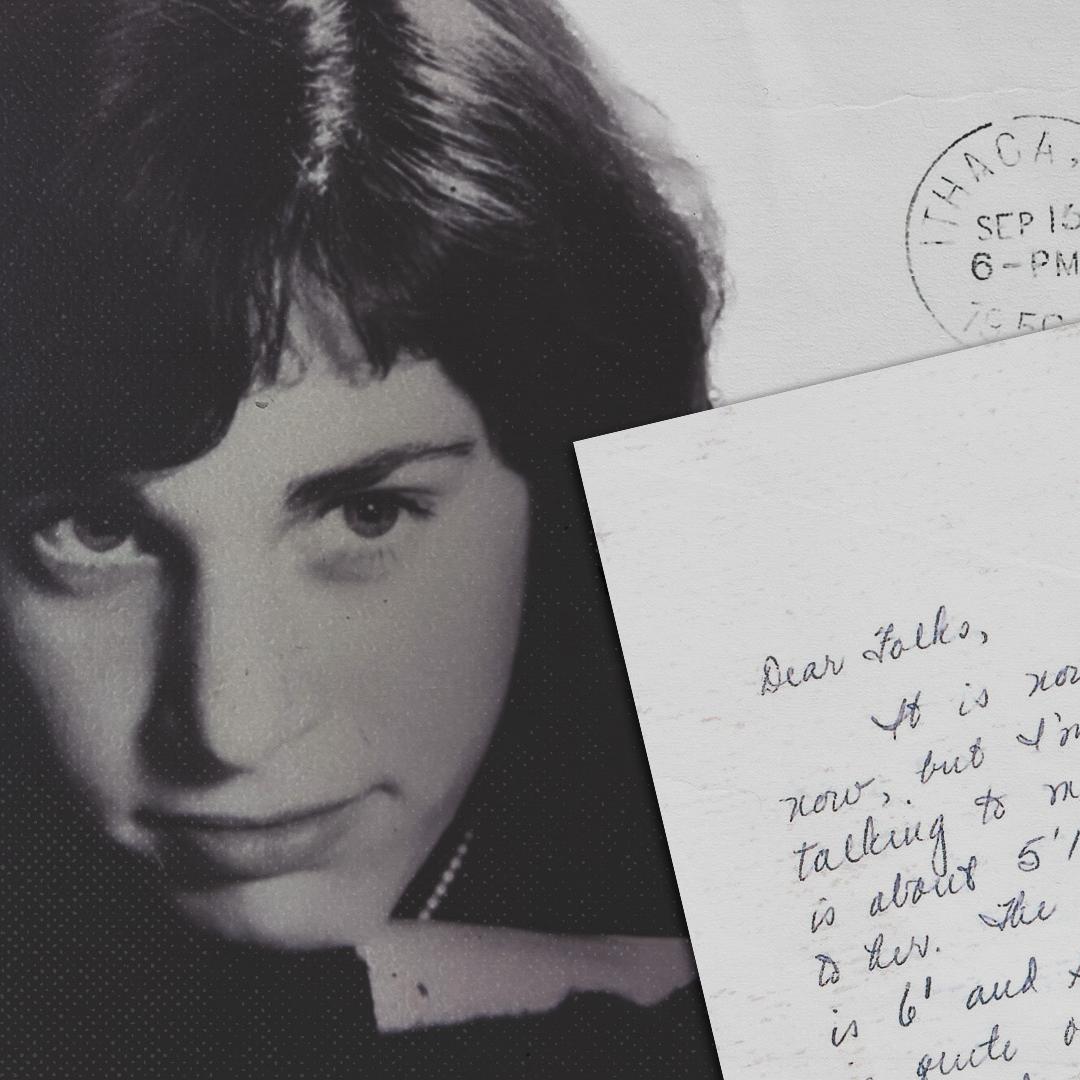 ITHACA,
SEP 15
6-PM
1950
Dear Folks,
It is now
now, but I'm
talking to m
is about 5'1
to her. The
is 6' and
quite o